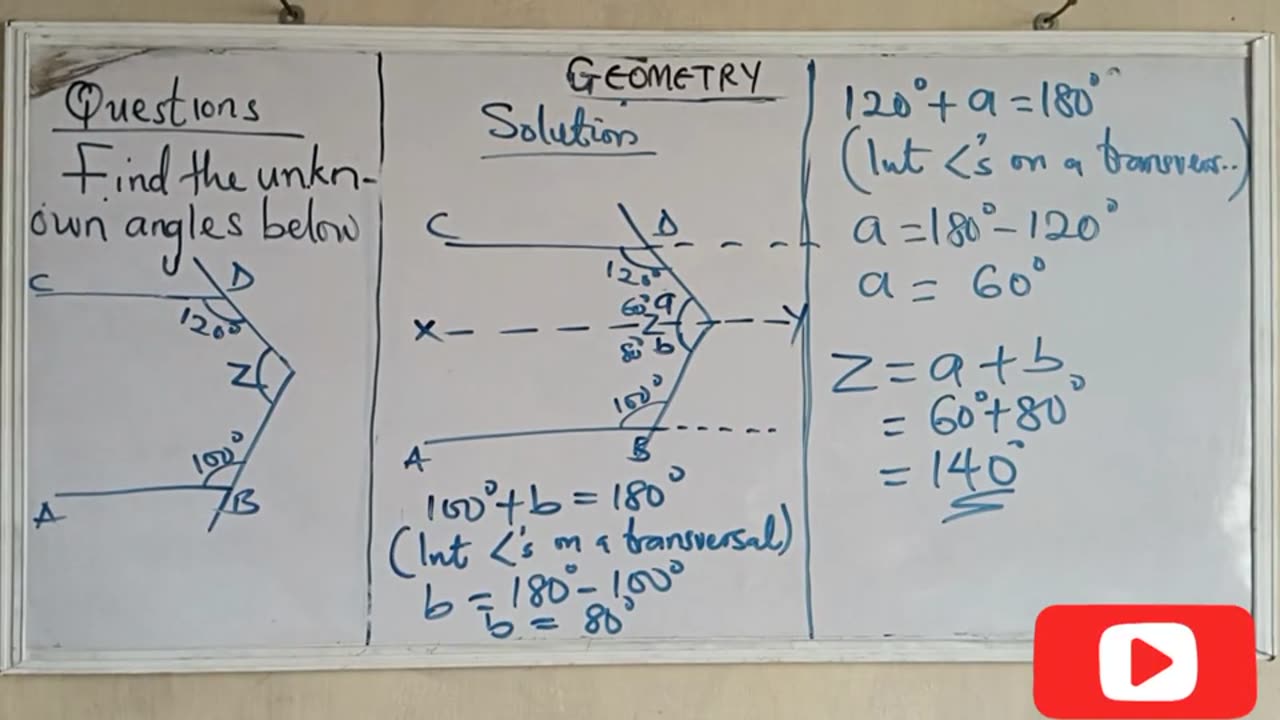 GEOMETRY
Questions
Find the unkn-
own angles below
C
D
120°
Z
100°
A
B
Solution
C
D
120°
60° a
X
Z
Y
80° b
100°
A
B
100° + b = 180°
(Int <'s on a transversal)
b = 180° - 100°
b = 80°
120° + a = 180°
(Int <'s on a transvers..)
a = 180° - 120°
a = 60°
Z = a + b
= 60° + 80°
= 140°